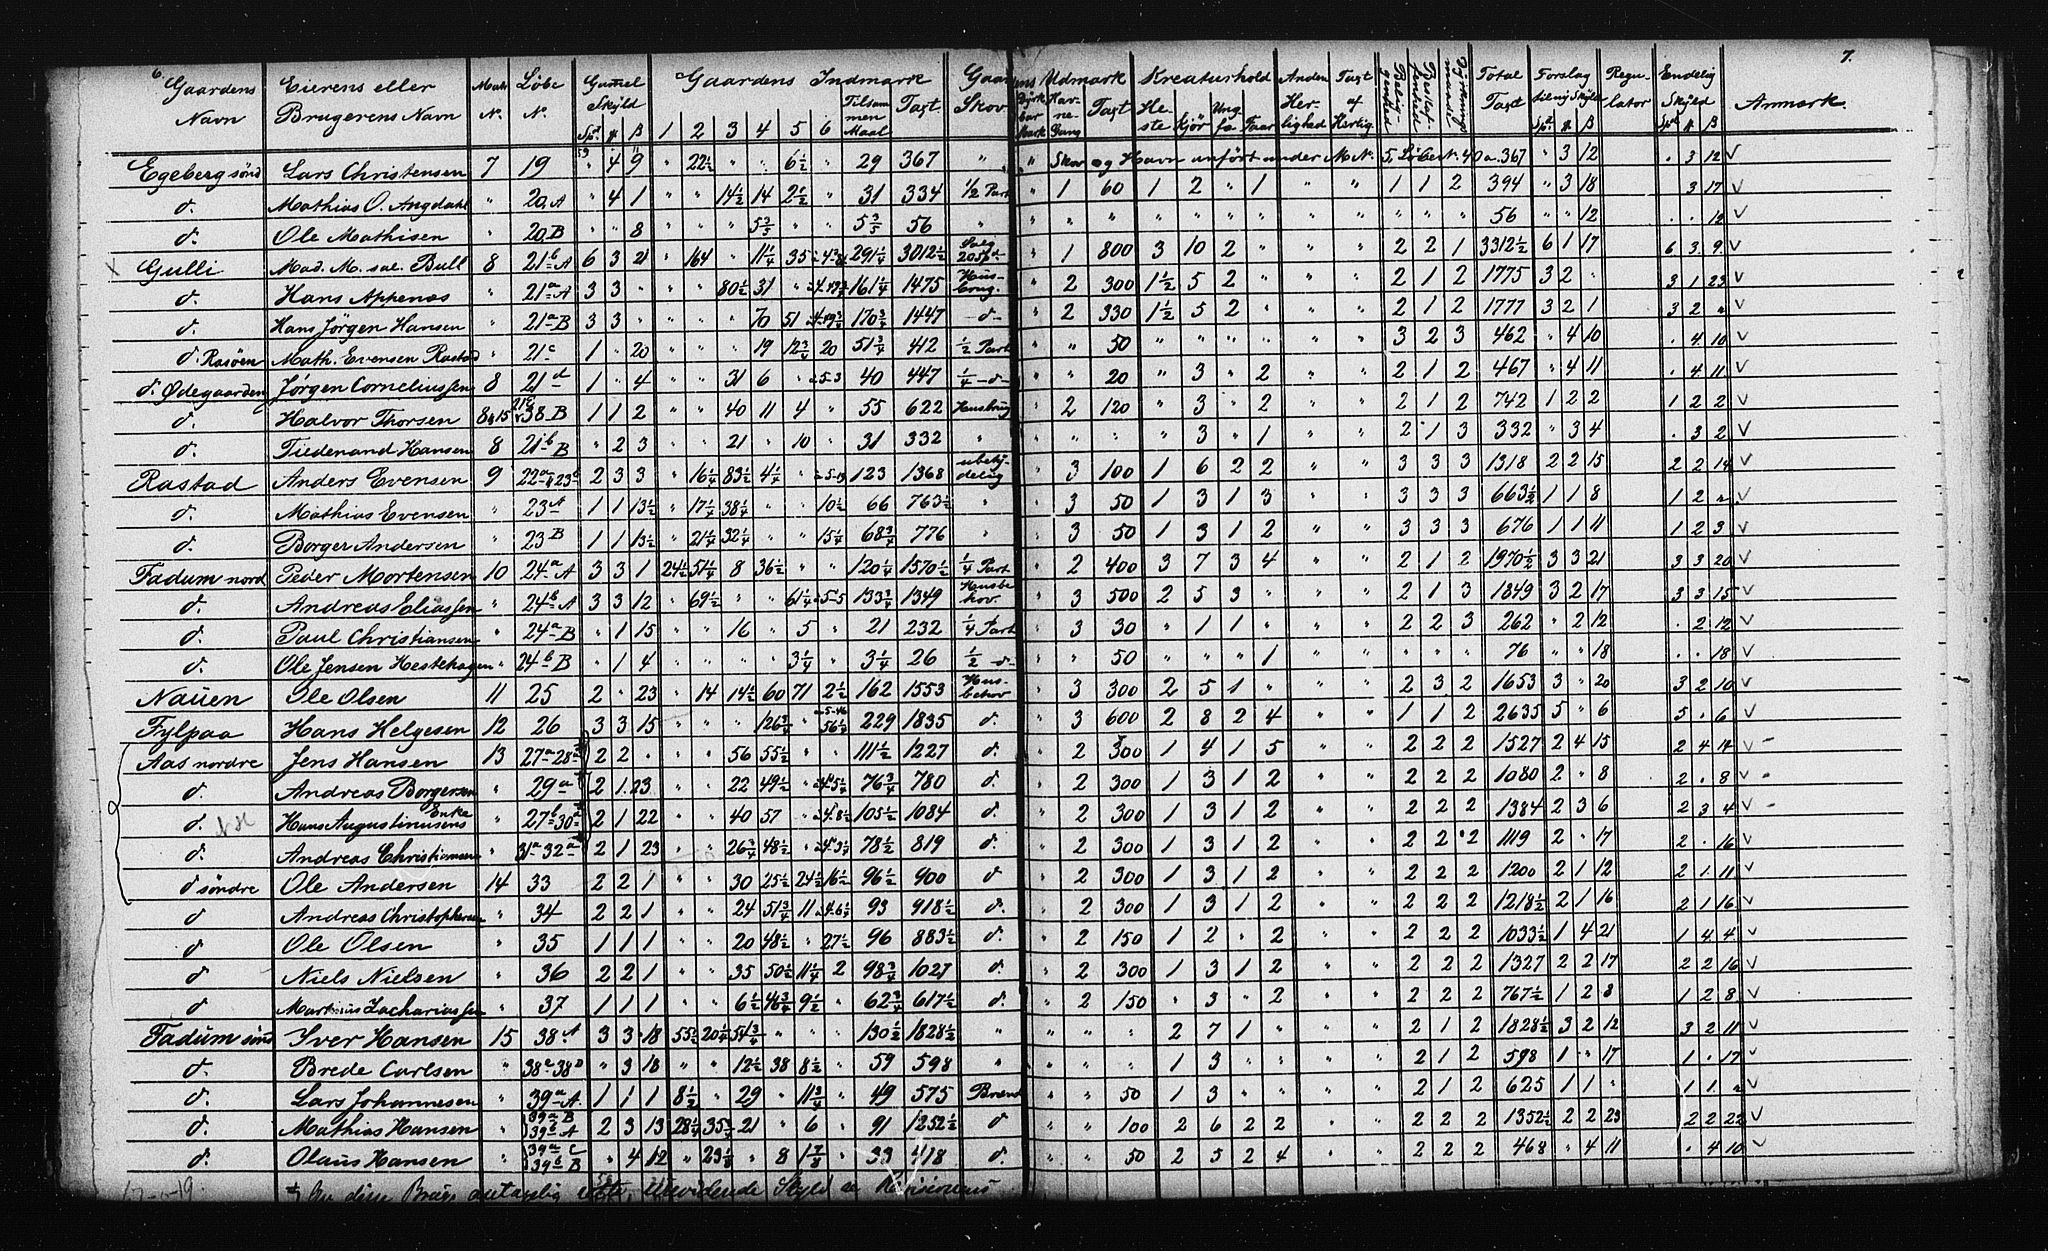 6 7.
Gaardens Navn | Eierens eller Brugerens Navn | Matr N. | Løbe N. | Gamel Skyld Spd. # β | Gaardens Indmark 1 2 3 4 5 6 Tilsammen Maal Taxt | Gaardens Skov | Udmark Dyrkbar Mark Havnegang Taxt | Kreaturhold Heste Kjör Ungfæ Faar | Anden Herlighed | Taxt af Herlig. | Total Taxt | Forslag til ny Skyld Spd. # β | Regulator | Endelig Skyld Spd # β | Anmærk.
Egeberg sönd Lars Christensen 7 19 " 4 9 " 22½ " " 6½ " 29 367 " " Skov og Havn anfört under M.N. 5, Löbe N. 40a. 367 " 3 12 . 3 12 V
d. Mathias O. Angdahl " 20 A " 4 1 " " 14½ 14 2½ " 31 334 ½ Part " 1 60 1 2 " 1 " " 1 1 2 394 " 3 18 3 17 V
d. Ole Mathisen " 20 B " " 8 56 " 56 " " 12 . . 12 V
Gulli Mad. M. sal. Bull 8 21b A 6 3 21 " 164 " 11¼ 35 291¼ 3012½ Salg 20 Spd. " 1 800 3 10 2 " " " 2 2 1 3312½ 6 1 17 6 3 9 V
d. Hans Appenæs " 21a A 3 3 " " " 80½ 31 161¼ 1475 Husbrug. " 2 300 1½ 5 2 " " " 2 1 2 1775 3 2 " 3 1 23 V
d. Hans Jörgen Hansen " 21a B 3 3 " " " " 70 51 170¾ 1447 -d- " 2 330 1½ 5 2 " " " 2 1 2 1777 3 2 1 3 2 " V
d. Rasöen Math. Evensen Rastad " 21c 1 " 20 " " " 19 12¾ 20 51¾ 412 ½ Part " " 50 " " " " " " 3 2 3 462 " 4 10 . 4 10 V
d. Ødegaarden Jörgen Corneliussen 8 21d 1 " 4 " " 31 6 " 40 447 ¼ -d- " " 20 " 3 " 2 " " 2 1 2 467 " 4 11 . 4 11 V
d. Halvor Thorsen 8 & 15 38 B 1 1 2 " " 40 11 4 " 55 622 Husbrug " 2 120 " 3 " 2 " " 2 1 2 742 1 2 2 1 2 2 V
d. Tiedenand Hansen 8 21b B " 2 3 " " 21 " 10 " 31 332 " " " " " 3 " 1 " " 2 1 3 332 " 3 4 . 3 2 V
Rastad Anders Evensen 9 22a & 23b 2 3 3 " 16¼ 83½ 4¼ " 123 1368 ubetydelig " 3 100 1 6 2 2 " " 3 3 3 1318 2 2 15 2 2 14 V
d. Mathias Evensen " 23 A 1 1 13½ " 17¼ 38¼ " " 10½ 66 763½ " " 3 50 1 3 1 3 " " 3 3 3 663½ 1 1 8 1 2 " V
d. Borger Andersen " 23 B 1 1 13½ " 21¼ 32¼ " " 15¼ 68¾ 776 " " 3 50 1 3 1 2 " " 3 3 3 676 1 1 11 1 2 3 V
Fadum nord Peder Mortensen 10 24a A 3 3 1 24½ 51¼ 8 36½ " " 120¼ 1570½ ¼ Part " 2 400 3 7 3 4 " " 2 1 2 1970½ 3 3 21 3 3 20 V
d. Andreas Eliassen " 24b A 3 3 12 " 69½ " " 61¼ 133¾ 1349 Husbehov. " 3 500 2 5 3 " " " 2 1 3 1849 3 2 17 3 3 15 V
d. Paul Christiansen " 24a B " 1 15 " " 16 " 5 " 21 232 ¼ Part " 3 30 " 1 1 " " " 2 2 3 262 " 2 12 . 2 12 V
d. Ole Jensen Hestehagen " 24b B " 1 4 " " " " 3¼ " 3¼ 26 ½ -d- " " 50 " " " 1 " " " " " 76 " " 18 . . 18 V
Nauen Ole Olsen 11 25 2 " 23 " 14 14½ 60 71 2½ 162 1553 Husbehov " 3 300 2 5 1 " " " 2 3 2 1653 3 " 20 3 2 10 V
Fylpaa Hans Helgesen 12 26 3 3 15 " " " 126¾ " 56½ 229 1835 d. " 3 600 2 8 2 4 " " 1 1 2 2635 5 " 6 5 . 6 V
Aas nordre Jens Hansen 13 27a-28a 2 2 " " " 56 55½ " " 111½ 1227 d. " 2 300 1 4 1 5 " " 2 2 2 1527 2 4 15 2 4 14 V
d. Andreas Borgersen " 29a 2 1 23 " " 22 49½ " 76¾ 780 d. " 2 300 1 3 1 2 " " 2 2 2 1080 2 " 8 2 . 8 V
d. Hans Augustinusens Enke " 27b 30a 2 1 22 " " 40 57 " 105½ 1084 d. " 2 300 1 3 1 2 " " 2 2 2 1384 2 3 6 2 3 4 V
d. Andreas Christiansen " 31a 32a 2 1 23 " " 26¾ 48½ " 78½ 819 d. " 2 300 1 3 1 2 " " 2 2 2 1119 2 " 17 2 . 16 V
d söndre Ole Andersen 14 33 2 2 1 " " 30 25½ 24½ 16½ 96½ 900 d. " 2 300 1 3 1 2 " " 2 2 2 1200 2 1 12 2 1 11 V
d Andreas Christophersen " 34 2 2 1 " " 24 51¾ 11 93 918½ d. " 2 300 1 3 1 2 " " 2 2 2 1218½ 2 1 16 2 1 16 V
d Ole Olsen " 35 1 1 1 " " 20 48½ " 27½ 96 883½ d. " 2 150 1 2 " 2 " " 2 2 2 1033½ 1 4 21 1 4 4 V
d Niels Nielsen " 36 2 2 1 " " 35 50½ 11¼ 2 98¾ 1027 d. " 2 300 1 3 1 2 " " 2 2 2 1327 2 2 17 2 2 16 V
d Martinius Zachariassen " 37 1 1 1 " " 6½ 46¾ 9½ " 62¾ 617½ d. " 2 150 " 3 " 2 " " 2 2 2 767½ 1 2 8 1 2 8 V
Fadum sönd Iver Hansen 15 38 A 3 3 18 55½ 20¼ 54¾ " " " 130½ 1828½ " " " " 2 7 1 " " " 2 1 2 1828½ 3 2 12 3 2 11 V
d. Brede Carlsen " 38a-38D " 3 18 " " 12½ 38 8½ " 59 598 " " " " 1 3 " " " " 2 1 2 598 1 " 17 1 . 17 V
d. Lars Johannesen " 39a A. 1 1 1 8½ " 29 " 11¾ " 49 575 Brænd " " 50 1 3 " " " " 2 1 2 625 1 1 " 1 1 " V
d. Mathias Hansen " 39a B 39b A 2 3 13 28¼ 35¾ 21 " 6 " 91 1252½ d " " 100 2 6 2 2 " " 2 2 2 1352½ 2 2 23 2 2 22 V
d. Olaus Hansen " 39a C 39b B " 4 12 " " 8 " 33 418 " " " 50 2 5 2 4 " " 2 2 2 468 " 4 11 . 4 10 V
disse Brug antagelig Skyld Revisionens